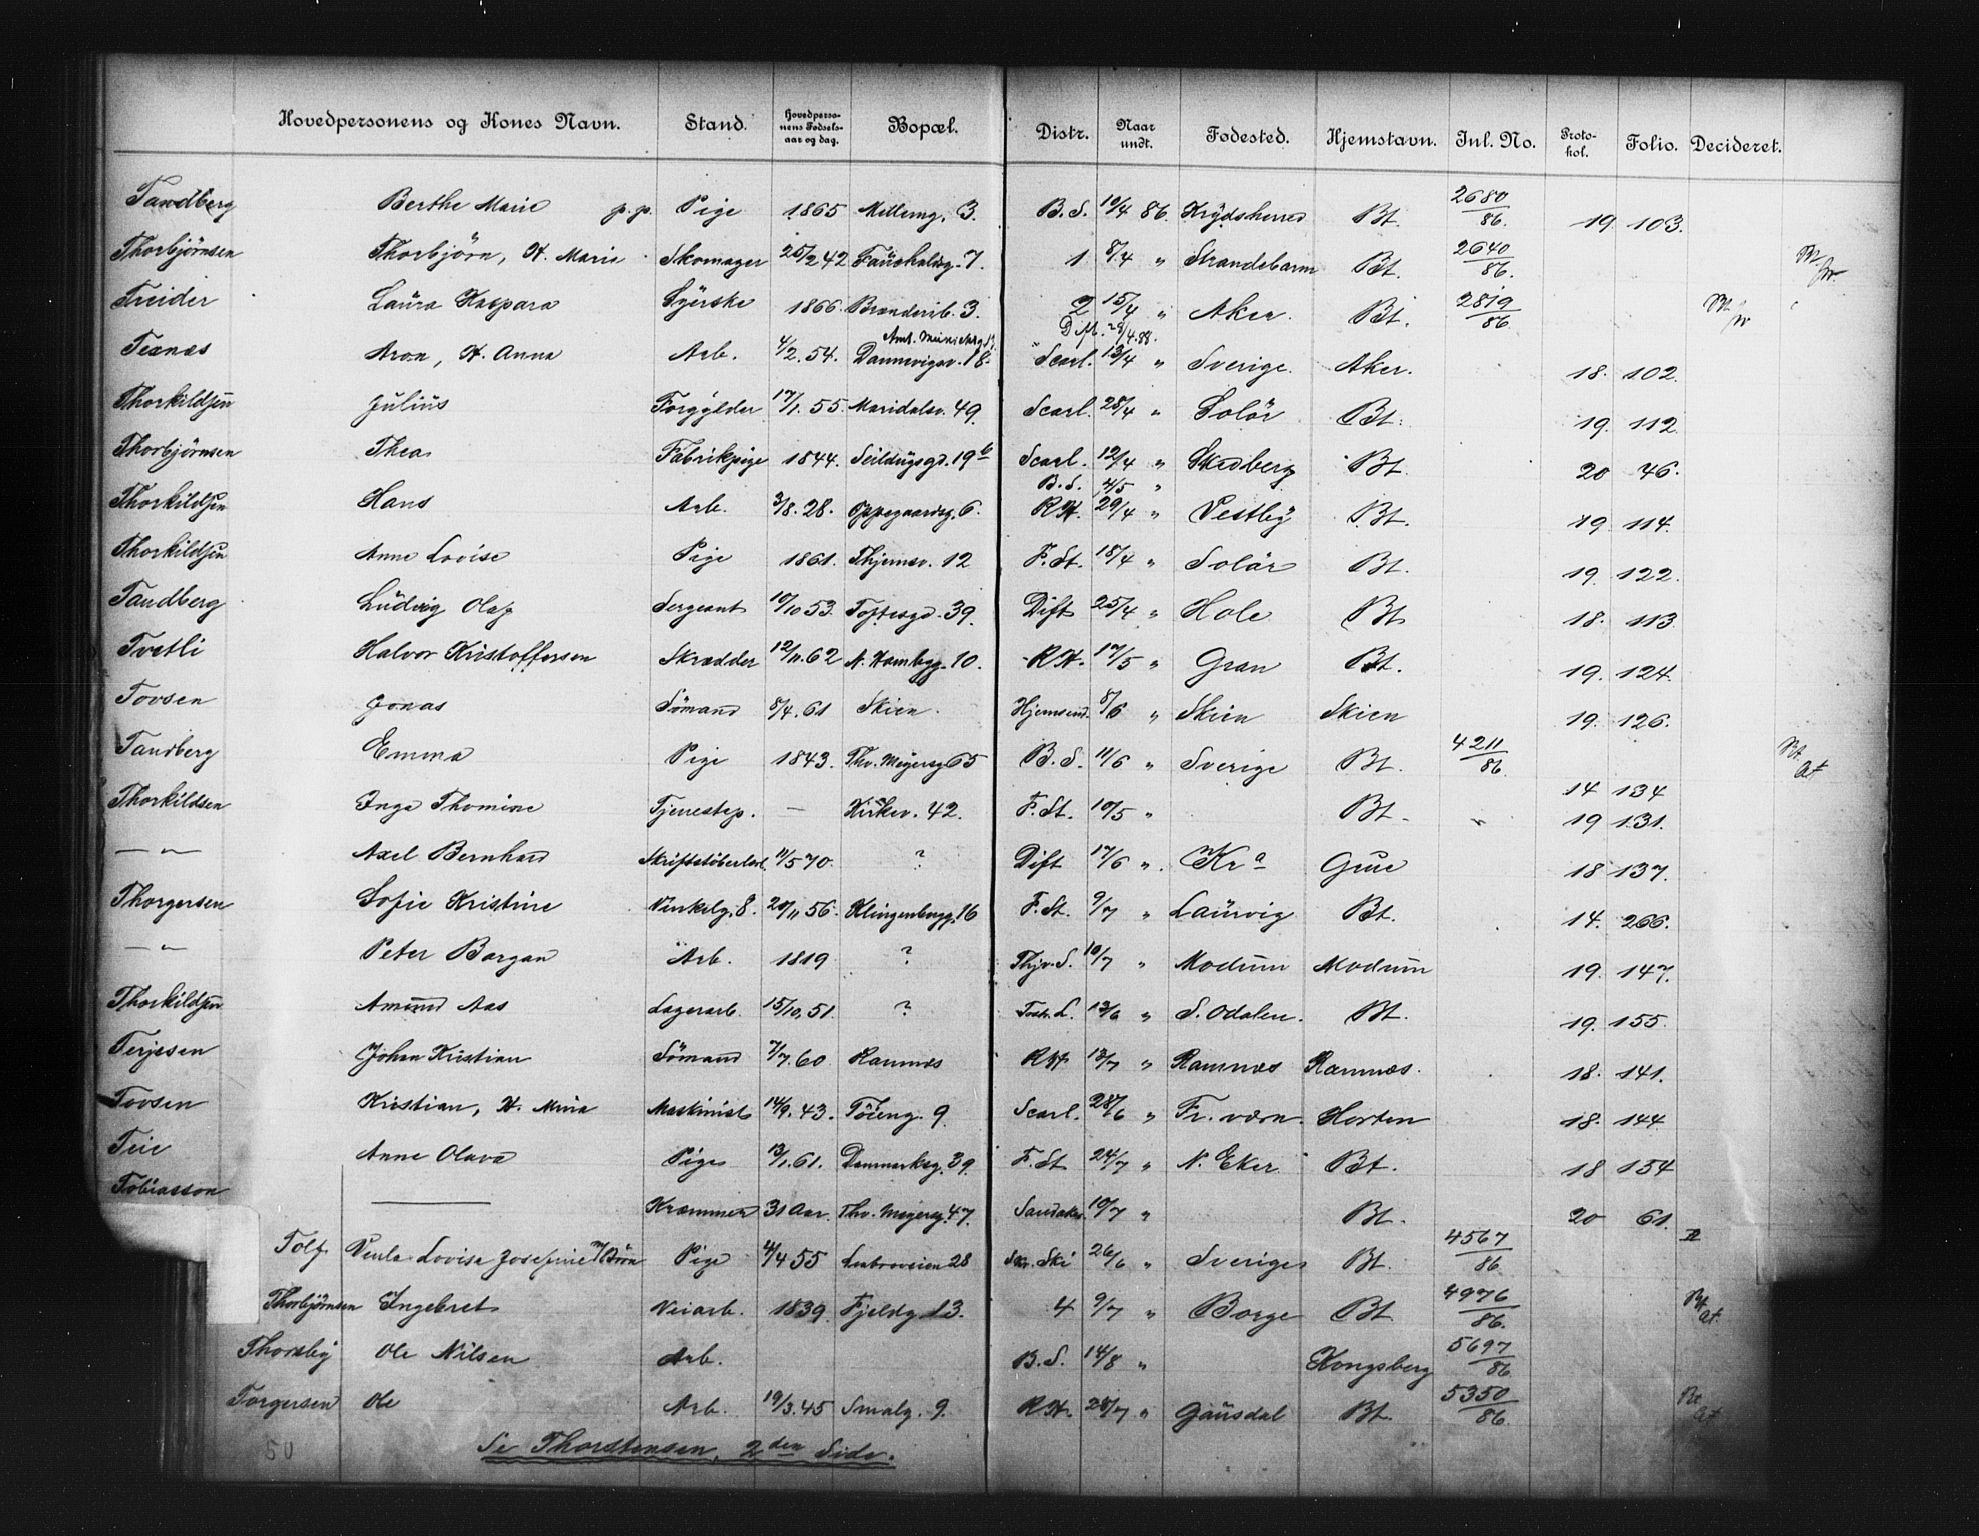 Hovedpersonens og Kones Navn. Stand. Hovedperso-nens Fødsels-aar og dag. Bopæl. Distr. Naar undt. Fødested. Hjemstavn. Inl. No. Proto-kol. Folio. Decideret.
Tandberg Berthe Marie p.p. Pige 1865 Mellemg. 3. B.S. 10/4 86. Krydsherred Bt. 2680/86. 19. 103.
Thorbjørnsen Thorbjörn, H. Marie Skomager 25/2 42 7. 1 8/4 " Strandebarm Bt. 2640/86.
Treider Laura Kaspara Syerske 1866. Brænderib. 3. 2 15/4 " Aker Bt. 2819/86. Bt.
Dift. 28/4.88.
Texnæs Aron, H. Anna Arb. 4/2. 54. Dannevigsv. 18. Scarl. 13/4 " Sverige. Aker. 18. 102.
Thorkildsen Julius Forgylder 17/1. 55. Maridalsv. 49. Scarl. 28/4 " Solör Bt. 19. 112.
Thorbjørnsen Thea Fabrikpige 1844. Seildugsgd. 19 b Scarl. 12/4 " Skedberg Bt. 20 46.
B.S. 4/5 "
Thorkildsen Hans Arb. 3/8. 28. Oppegaardsg. 6. RH. 29/4 " Vestby Bt. 19. 114.
Thorkildsen Anne Lovise Pige 1861. Thjemsv. 12 F. St. 18/4 " Solör Bt. 19. 122.
Tandberg Ludvig Olaf Sergeant 10/10 53. Toftesgd. 39. Dift 25/4 " Hole Bt 18. 113
Tvetli Halvor Kristoffersen Skrædder 12/11. 62 N. Hambgg. 10. RH. 17/5 " Gran Bt. 19. 124.
Tovsen Jonas Sømand 8/4. 61 Skien. Hjemsend. 8/6 " Skien Skien 19. 126.
Tandberg Emma Pige 1843. Thv. Meyersg 65 B.S. 11/6 " Sverige Bt. 4211/86. Bt. at
14 134
Thorkildsen Inga Thomine Tjenestep. — Kirkev. 42. F. St. 10/5 " Bt. 19 131.
— " — Axel Bernhard Skriftstöberlærl. 11/5 70. ? Dift 17/6 " Kr a Grue 18 137.
Thorgersen Sofie Kristine Vinkelg. 8. 20/11 56. Klingenbergg. 16 F. St. 9/7 " Laurvig Bt. 14. 266.
— " — Peter Borgan Arb. 1819 ? Thjv. S. 10/7 " Modum Modum 19. 147.
Thorkildsen Amund Aas Lagerarb. 15/10. 51. ? L. 13/6 " S. Odalen. Bt. 19. 155.
Terjesen Johan Kristian Sømand 7/7. 60 Ramnæs RH 13/7 " Ramnæs Ramnæs. 18. 141.
Tovsen Kristian, H. Mina Maskinist 14/9. 43. Töieng. 9. Scarl. 28/6 " Fr. værn. Horten 18. 144
Teie Anne Olava Pige 13/1. 61. Danmarksg. 39. F. St 24/7 " N. Eker Bt. 18 154
Tobiasson — Kræmmer 31 Aar. Thv. Meyersg. 47. Sandaker. 10/7 " Bt. 20 61.
Tolf Venla Lovise Josefine m/ Börn Pige 4/4 55 Ljabroveien 28 Skr. Ski 26/6 " Sverige Bt. 4567/86
Thorbjørnsen Ingebret Veiarb. 1839. Fjeldg. 13. 4 9/7 " Borge Bt 4976/86. Bt. at.
Thoresby Ole Nilsen Arb. B.S. 14/8 " Kongsberg 5697/86.
Torgersen Ole Arb. 19/3. 45 Smalg. 9. RH. 28/7 " Gausdal Bt. 5350/86. Bt. at
50 Se Thorstensen, 2den Side.